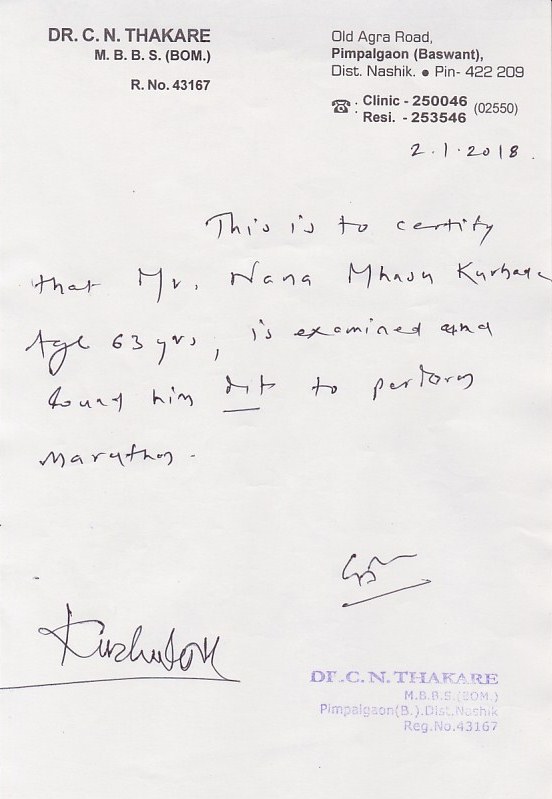 DR. C. N. THAKARE
M. B. B. S. (BOM.)
R. No. 43167
Old Agra Road,
Pimpalgaon (Baswant),
Dist. Nashik. ● Pin- 422 209
☎ : Clinic - 250046
Resi. - 253546 (02550)
2.1.2018.
This is to certify
that Mr. Nana Mhasu
Age 63 yrs, is examined and
found him fit to perform
marathon.
DR.C.N.THAKARE
M.B.B.S.(BOM.)
Pimpalgaon(B.).Dist.Nashik
Reg.No.43167